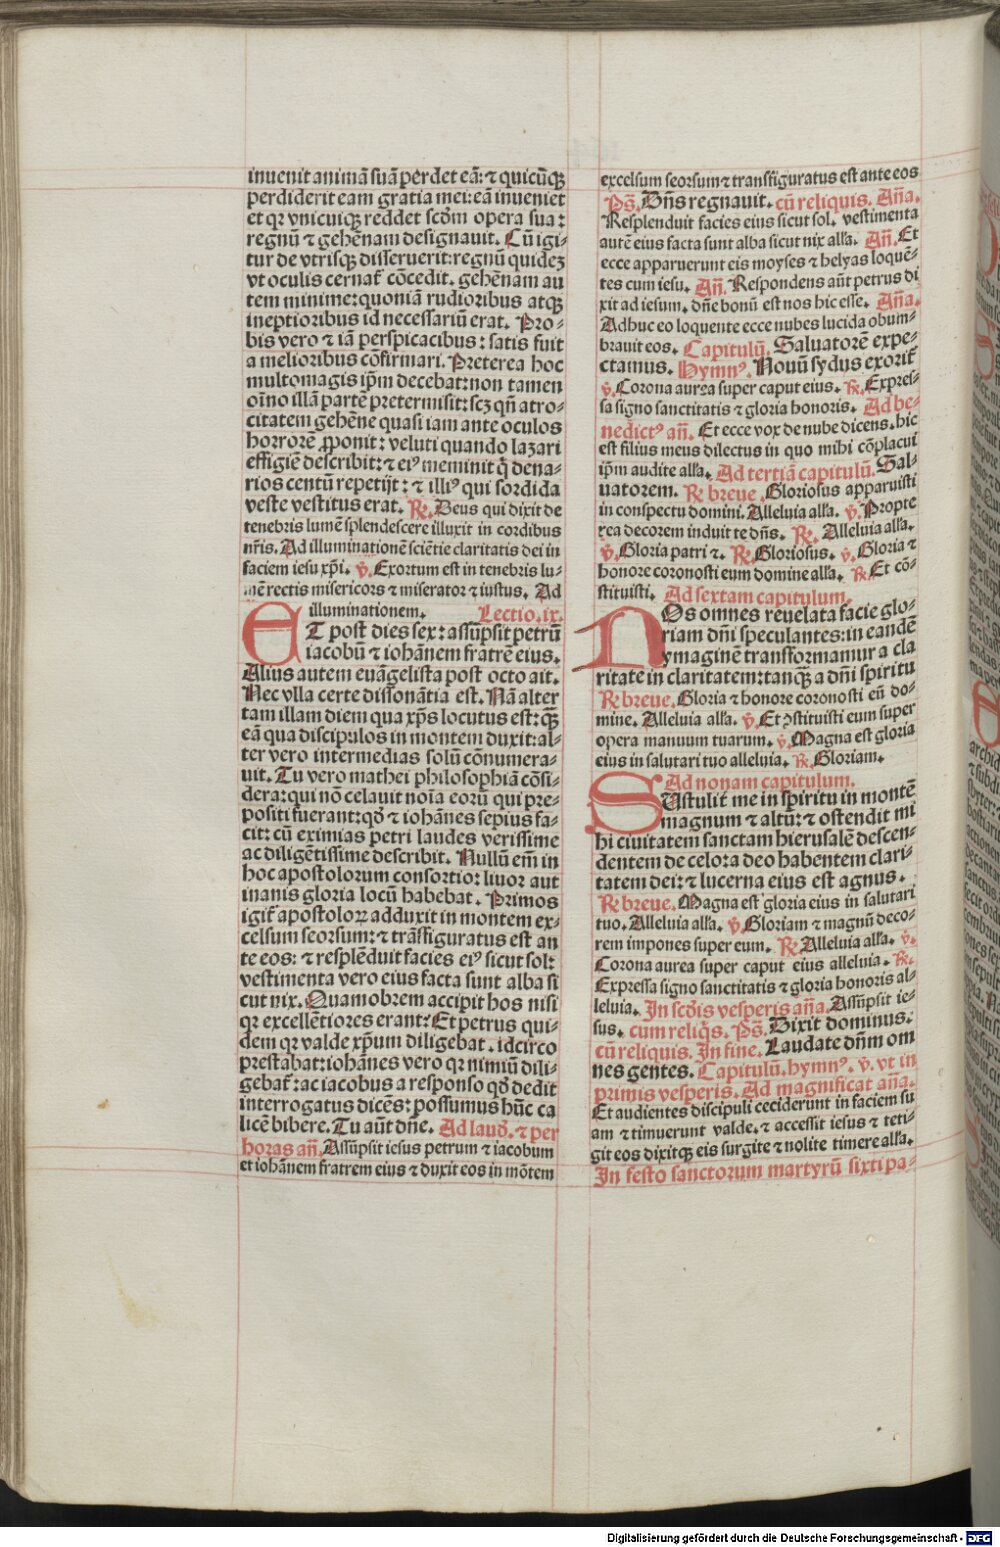 inuenit animā suā perdet eā: ⁊ quicūqꝫ
perdiderit eam gratia mei: eā inueniet
et qꝛ vnicuiqꝫ reddet scd̄m opera sua:
regnū ⁊ gehēnam designauit. Cū igi-
tur de vtrisqꝫ disseruerit: regnū quideꝫ
vt oculis cernāt cōcedit. gehēnam au
tem minime: quoniā rudioribus atqꝫ
ineptioribus id necessariū erat. Pro-
bis vero ⁊ iā perspicacibus: satis fuit
a melioribus cōfirmari. Preterea hoc
multomagis ip̄m decebat: non tamen
oīno illā partē pretermisit: scꝫ qn̄ atro-
citatem gehēne quasi iam ante oculos
horrorē ꝓponit: veluti quando lazari
effigiē describit: ⁊ eiꝰ meminit q̄ dena-
rios centū repetijt: ⁊ illiꝰ qui sordida
veste vestitus erat. ℟. Deus qui dixit de
tenebris lumē splendescere illuxit in cordibus
nr̄is. Ad illuminationē sciētie claritatis dei in
faciem iesu xp̄i. ℣. Exortum est in tenebris lu-
mē rectis misericors ⁊ miserator ⁊ iustus. Ad
illuminationem. Lectio. ix.
ET post dies sex: assūpsit petrū
iacobū ⁊ iohānem fratrē eius.
Alius autem euāgelista post octo ait.
Nec vlla certe dissonātia est. Nā alter
tam illam diem qua xp̄s locutus est: qꝫ
eā qua discipulos in montem duxit: al-
ter vero intermedias solū cōnumera-
uit. Tu vero mathei philosophiā cōsi-
dera: qui nō celauit noīa eorū qui pre-
positi fuerant: qd̄ ⁊ iohānes sepius fa-
cit: cū eximias petri laudes verissime
ac diligētissime describit. Nullū em̄ in
hoc apostolorum consortio: liuor aut
inanis gloria locū habebat. Primos
igit̄ apostoloꝝ adduxit in montem ex-
celsum seorsum: ⁊ trāsfiguratus est an
te eos: ⁊ resplēduit facies eiꝰ sicut sol:
vestimenta vero eius facta sunt alba si
cut nix. Quamobrem accipit hos nisi
qꝛ excellētiores erant? Et petrus qui-
dem qꝛ valde xp̄um diligebat. idcirco
prestabat: iohānes vero qꝛ nimiū dili-
gebat̄: ac iacobus a responso qd̄ dedit
interrogatus dicēs: possumus hūc ca
licē bibere. Tu aūt dn̄e. Ad laud̄. ⁊ per
horas an̄. Assūpsit iesus petrum ⁊ iacobum
et iohānem fratrem eius ⁊ duxit eos in mōtem
excelsum seorsum ⁊ transfiguratus est ante eos
Ps̄. Dn̄s regnauit. cū reliquis. An̄a.
Resplenduit facies eius sicut sol. vestimenta
autē eius facta sunt alba sicut nix all'a. An̄. Et
ecce apparuerunt eis moyses ⁊ helyas loquē-
tes cum iesu. An̄. Respondens aūt petrus di
xit ad iesum. dn̄e bonū est nos hic esse. An̄a.
Adhuc eo loquente ecce nubes lucida obum-
brauit eos. Capitulū. Saluatorē expe-
ctamus. Hymnꝰ. Nouū sydus exorit̄
℣. Corona aurea super caput eius. ℟. Expres-
sa signo sanctitatis ⁊ gloria honoris. Ad be-
nedictꝰ an̄. Et ecce vox de nube dicens. hic
est filius meus dilectus in quo mihi cōplacui
ip̄m audite all'a. Ad tertiā capitulū. Sal-
uatorem. ℟ breue. Gloriosus apparuisti
in conspectu domini. Alleluia all'a. ℣. Propte
rea decorem induit te dn̄s. ℟. Alleluia all'a.
℣. Gloria patri ⁊. ℟. Gloriosus. ℣. Gloria ⁊
honore coronosti eum domine all'a. ℟. Et cō-
stituisti. Ad sextam capitulum.
NOs omnes reuelata facie glo-
riam dn̄i speculantes: in eandē
ymaginē transformamur a cla
ritate in claritatem: tanqꝫ a dn̄i spiritu
℟ breue. Gloria ⁊ honore coronosti eū do-
mine. Alleluia all'a. ℣. Et ꝯstituisti eum super
opera manuum tuarum. ℣. Magna est gloria
eius in salutari tuo alleluia. ℟. Gloriam.
Ad nonam capitulum.
SUstulit me in spiritu in montē
magnum ⁊ altū: ⁊ ostendit mi
hi ciuitatem sanctam hierusalē descen-
dentem de celo: a deo habentem clari-
tatem dei: ⁊ lucerna eius est agnus.
℟ breue. Magna est gloria eius in salutari
tuo. Alleluia all'a. ℣. Gloriam ⁊ magnū deco-
rem impones super eum. ℟. Alleluia all'a. ℣.
Corona aurea super caput eius alleluia. ℟.
Expressa signo sanctitatis ⁊ gloria honoris al-
leluia. In scd̄is vesperis an̄a. Assūpsit ie-
sus. cum reliq̄s. Ps̄. Dixit dominus.
cū reliquis. In fine. Laudate dn̄m om
nes gentes. Capitulū. hymnꝰ. ℣. vt in
primis vesperis. Ad magnificat an̄a.
Et audientes discipuli ceciderunt in faciem su
am ⁊ timuerunt valde. ⁊ accessit iesus ⁊ teti-
git eos dixitqꝫ eis surgite ⁊ nolite timere all'a.
In festo sanctorum martyrū sixti pa-
Digitalisierung gefördert durch die Deutsche Forschungsgemeinschaft - DFG